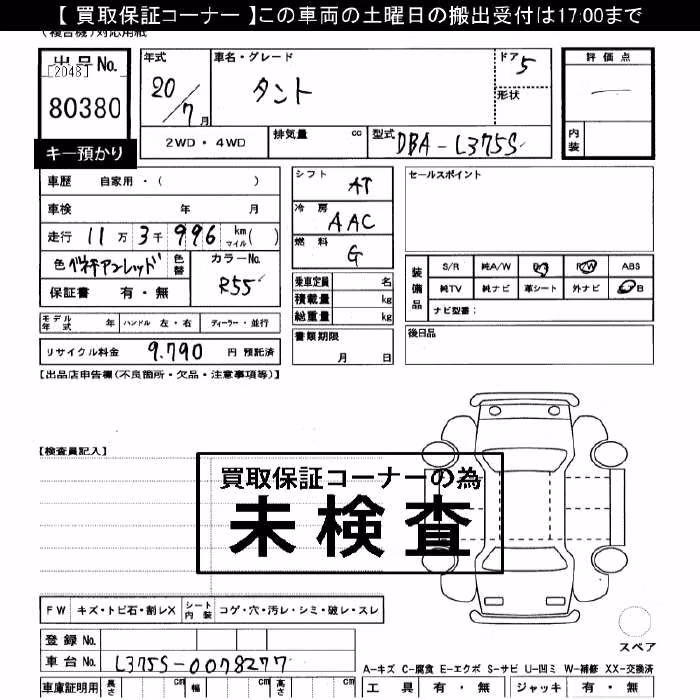 【 買取保証コーナー 】この車両の土曜日の搬出受付は17:00まで
(複合機)対応用紙
出品No. [2048] 80380
キー預かり
年式 20/7月 車名・グレード タント ドア 5 形状
2WD・4WD 排気量 cc 型式 DBA-L375S
評価点 —
内装
車歴 自家用・( )
車検 年 月
走行 11万3千996 km マイル( )
色 色替 カラーNo. R55
保証書 有・無
モデル年式 年 ハンドル 左・右 ディーラー・並行
リサイクル料金 9,790 円 預託済
シフト AT
冷房 AAC
燃料 G
乗車定員 名
積載量 kg
総重量 kg
書類期限 月 日
セールスポイント
装備品 S/R 純A/W P/S P/W ABS
純TV 純ナビ 革シート 外ナビ B
ナビ型番:
後日品
【出品店申告欄(不良箇所・欠品・注意事項等)】
【検査員記入】
買取保証コーナーの為
未検査
FW キズ・トビ石・割レX シート内装 コゲ・穴・汚レ・シミ・破レ・スレ
登録No.
車台No. L375S-0078277
車庫証明用 長さ cm 幅 cm 高さ cm
スペア
A-キズ C-腐食 E-エクボ S-サビ U-凹ミ W-補修 XX-交換済
工具 有・無 ジャッキ 有・無